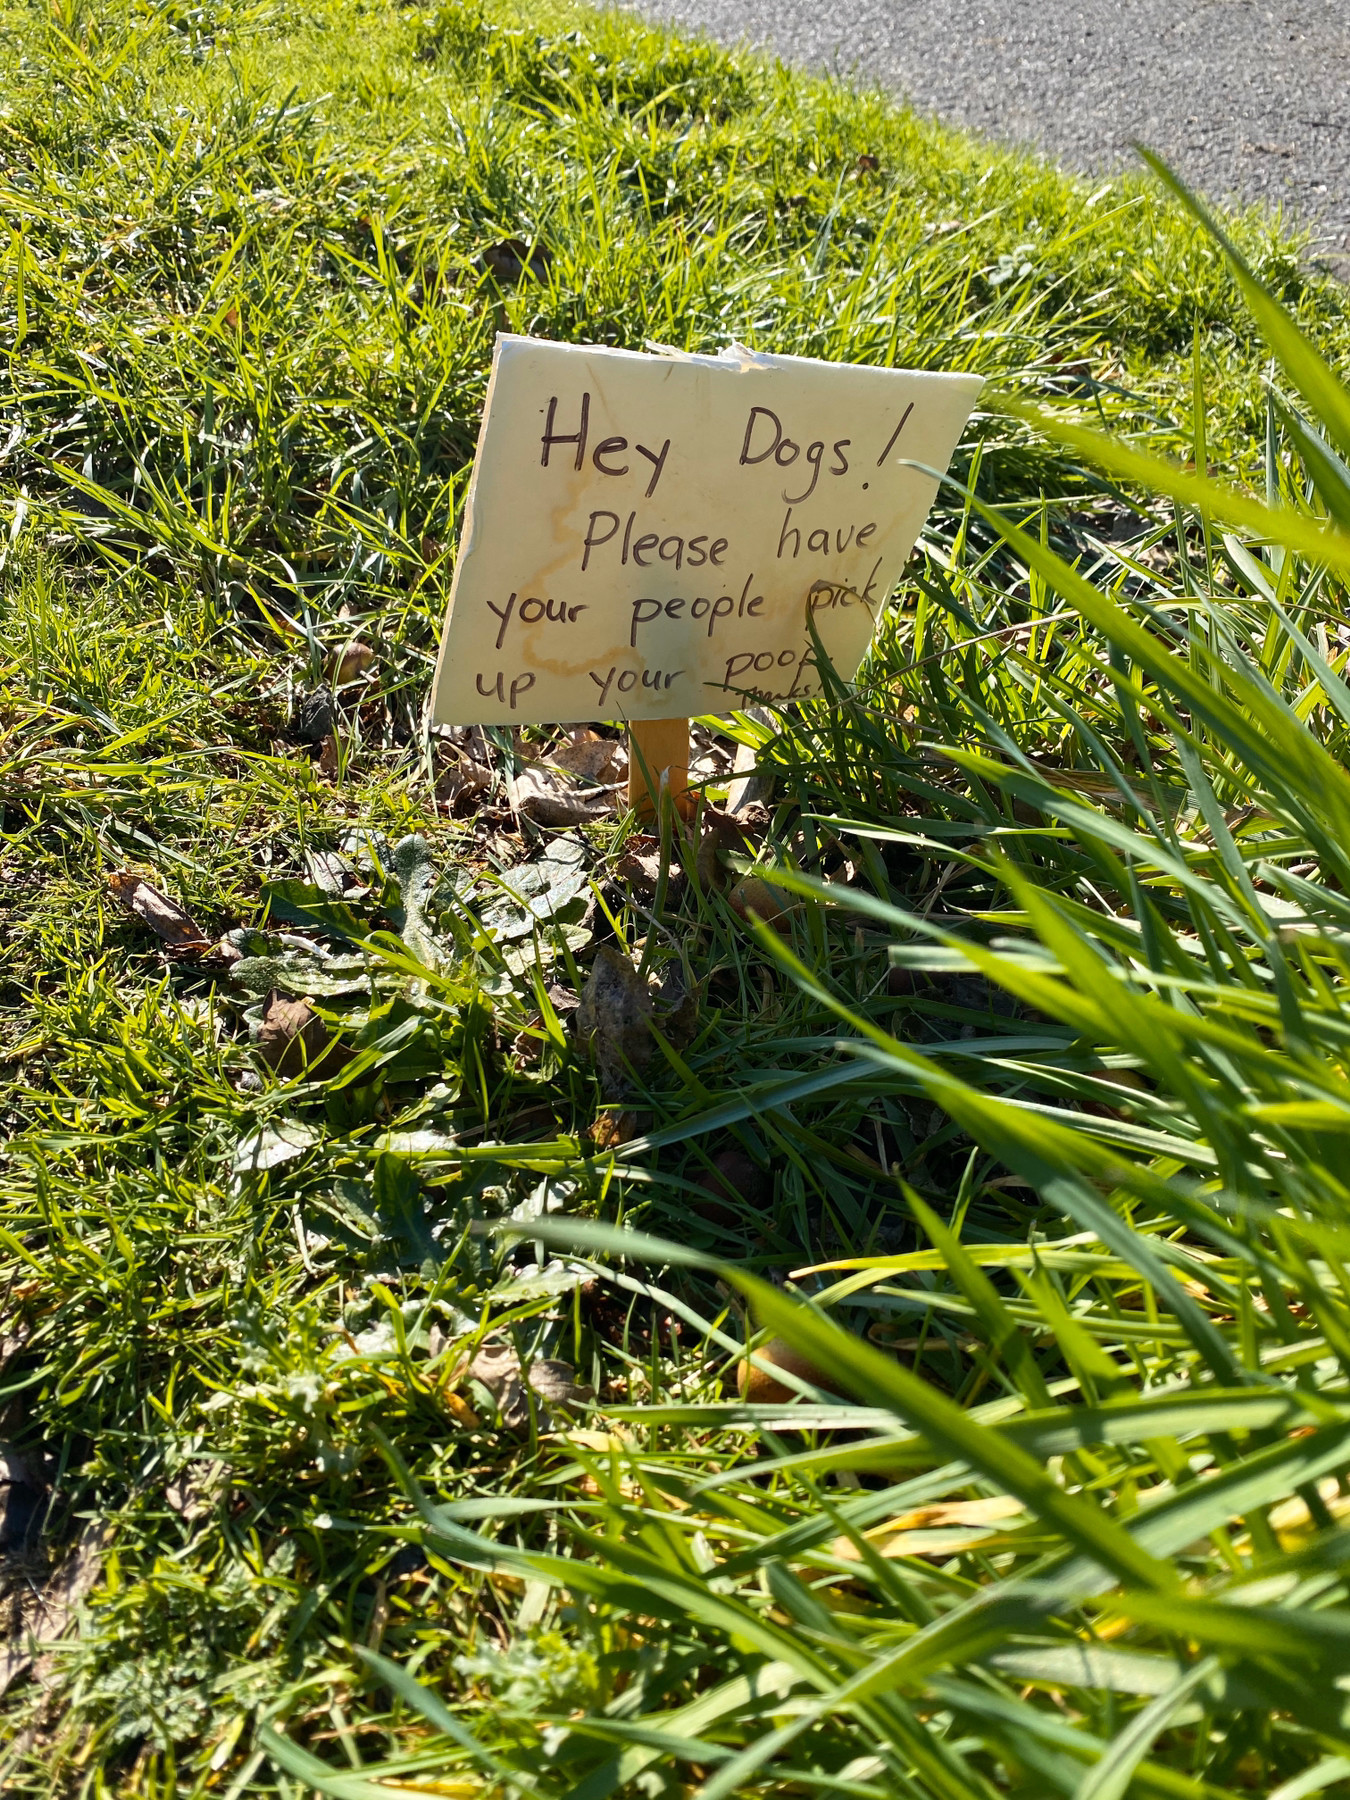 Hey Dogs!
Please have
your people pick
up your poop.
Thanks!